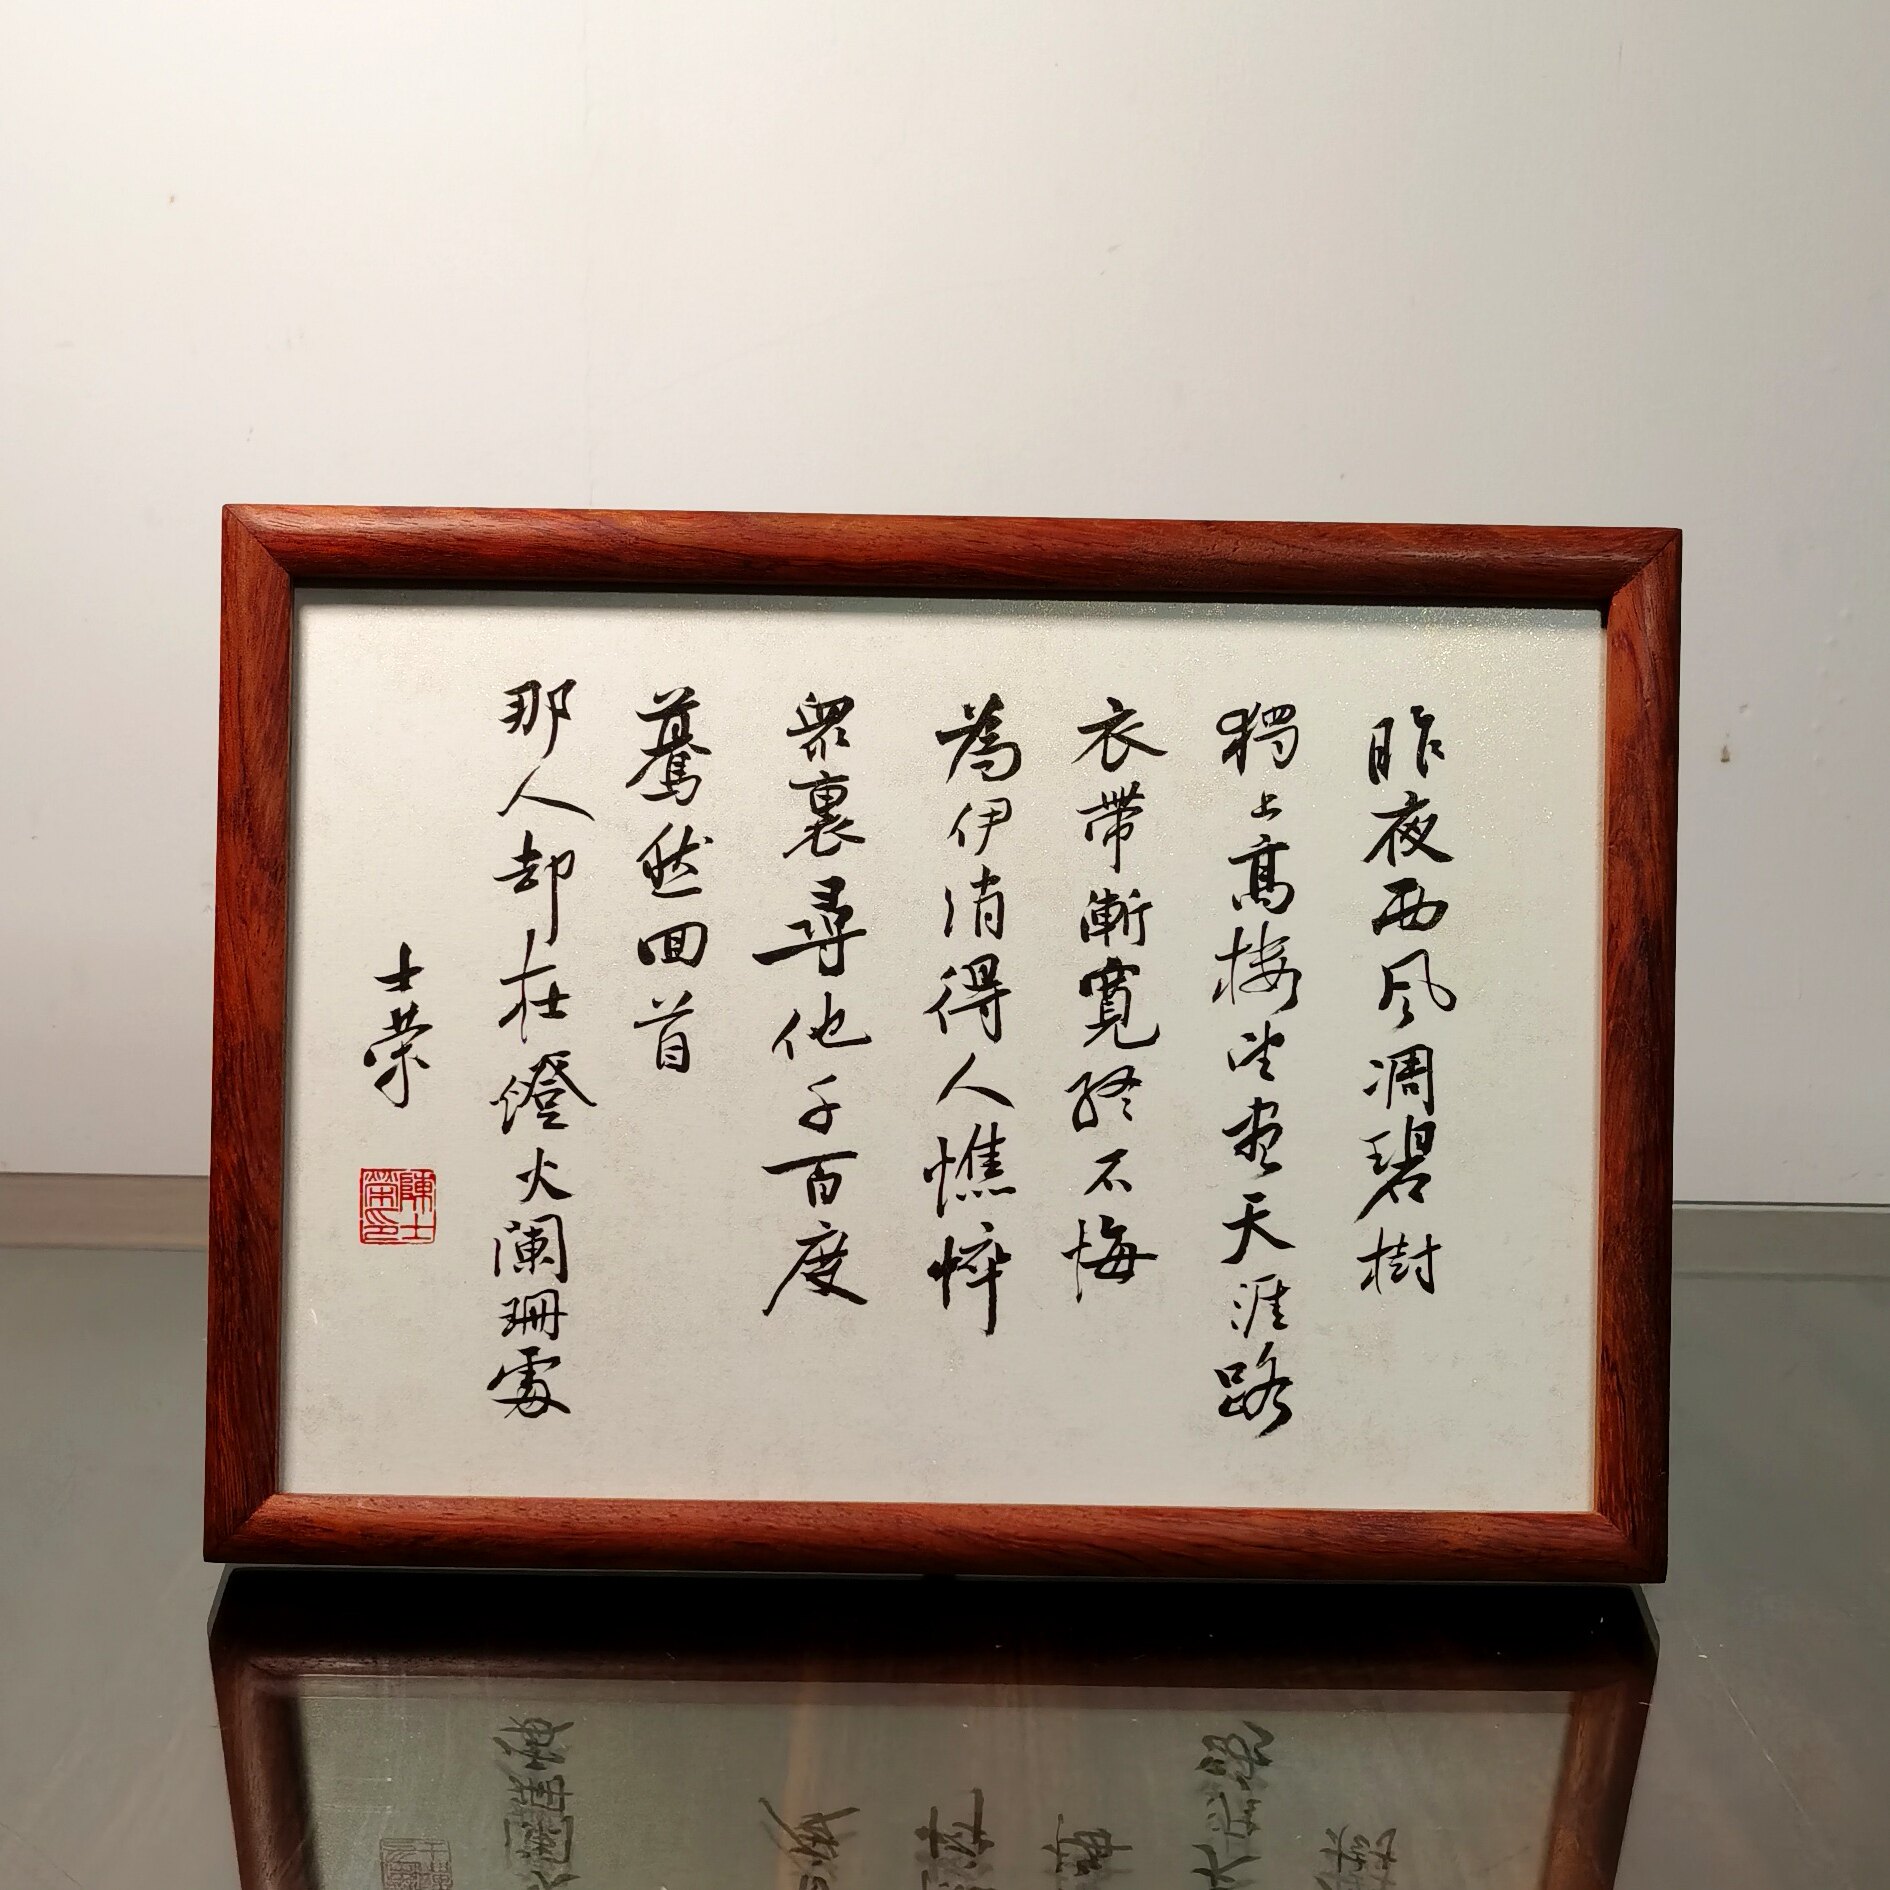 昨夜西风凋碧樹
獨上高樓望盡天涯路
衣帶漸寬終不悔
為伊消得人憔悴
眾裏尋他千百度
驀然回首
那人却在燈火阑珊處
士荣
陳士榮印